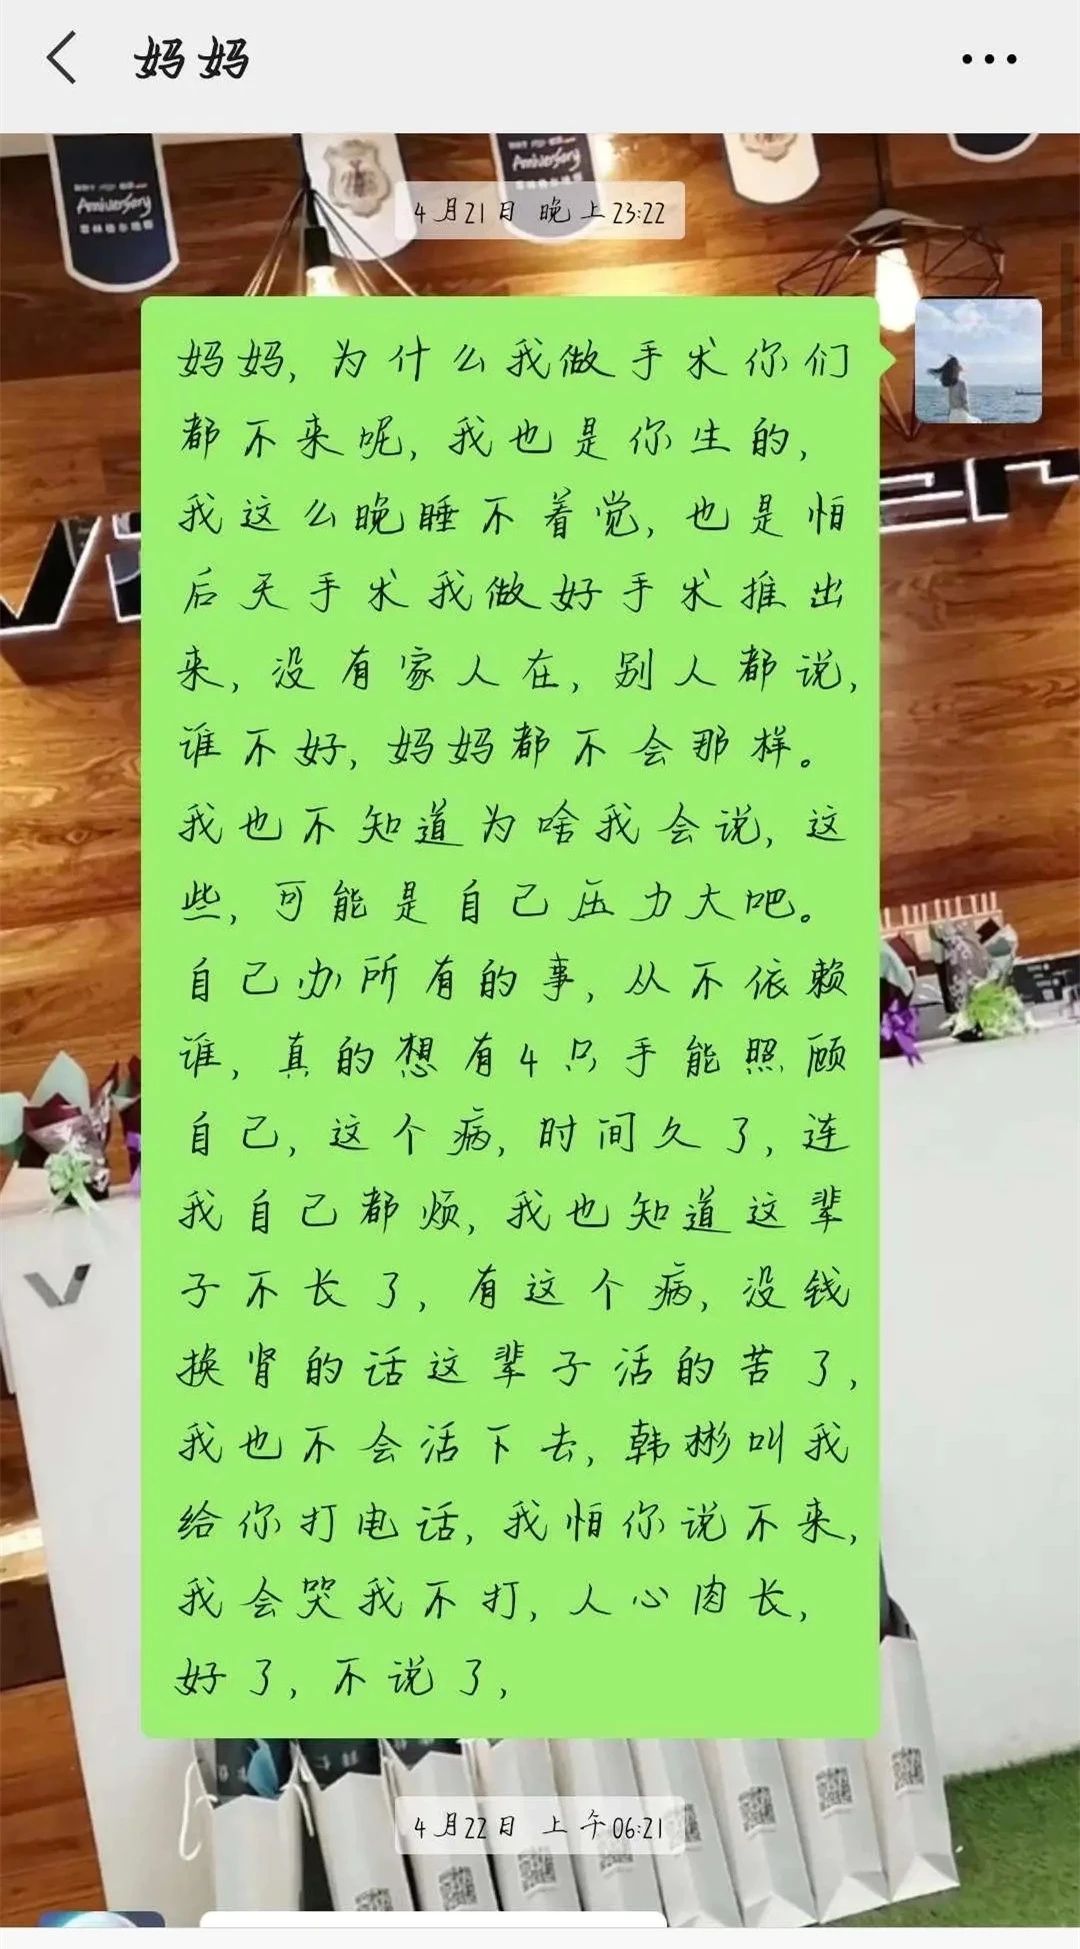 妈妈
Anniversary
Anniversary
4月21日 晚上23:22
妈妈,为什么我做手术你们
都不来呢,我也是你生的,
我这么晚睡不着觉,也是怕
后天手术我做好手术推出
来,没有家人在,别人都说,
谁不好,妈妈都不会那样。
我也不知道为啥我会说,这
些,可能是自己压力大吧。
自己办所有的事,从不依赖
谁,真的想有4只手能照顾
自己,这个病,时间久了,连
我自己都烦,我也知道这辈
子不长了,有这个病,没钱
换肾的话这辈子活的苦了,
我也不会活下去,韩彬叫我
给你打电话,我怕你说不来,
我会哭我不打,人心肉长,
好了,不说了,
4月22日 上午06:21